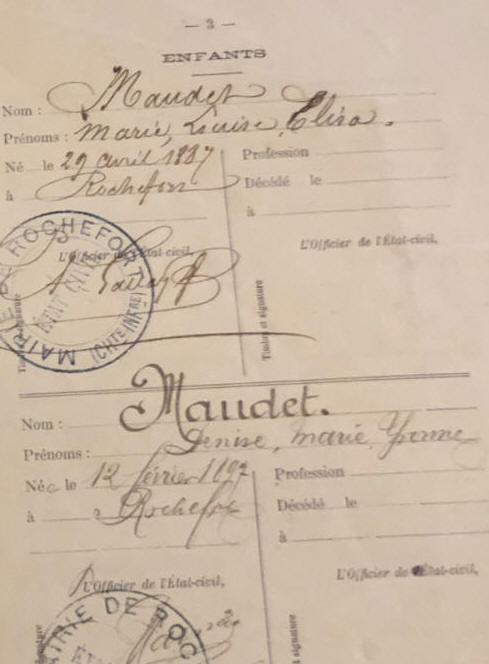 — 3 —
ENFANTS
Nom : Maudet
Prénoms : Marie, Louise Elisa.
Né le 29 avril 1887
Profession
à Rochefort
Décédé le
à
L'Officier de l'État-civil,
L'Officier de l'État-civil,
MAIRIE DE ROCHEFORT
ÉTAT CIVIL
(CHTE INFRE)
Timbre et signature
Timbre et signature
Nom : Maudet.
Prénoms : Denise, Marie Yvonne
Née le 12 février 1897
Profession
à Rochefort
Décédé le
à
L'Officier de l'État-civil,
L'Officier de l'État-civil,
MAIRIE DE ROC
signature
signature